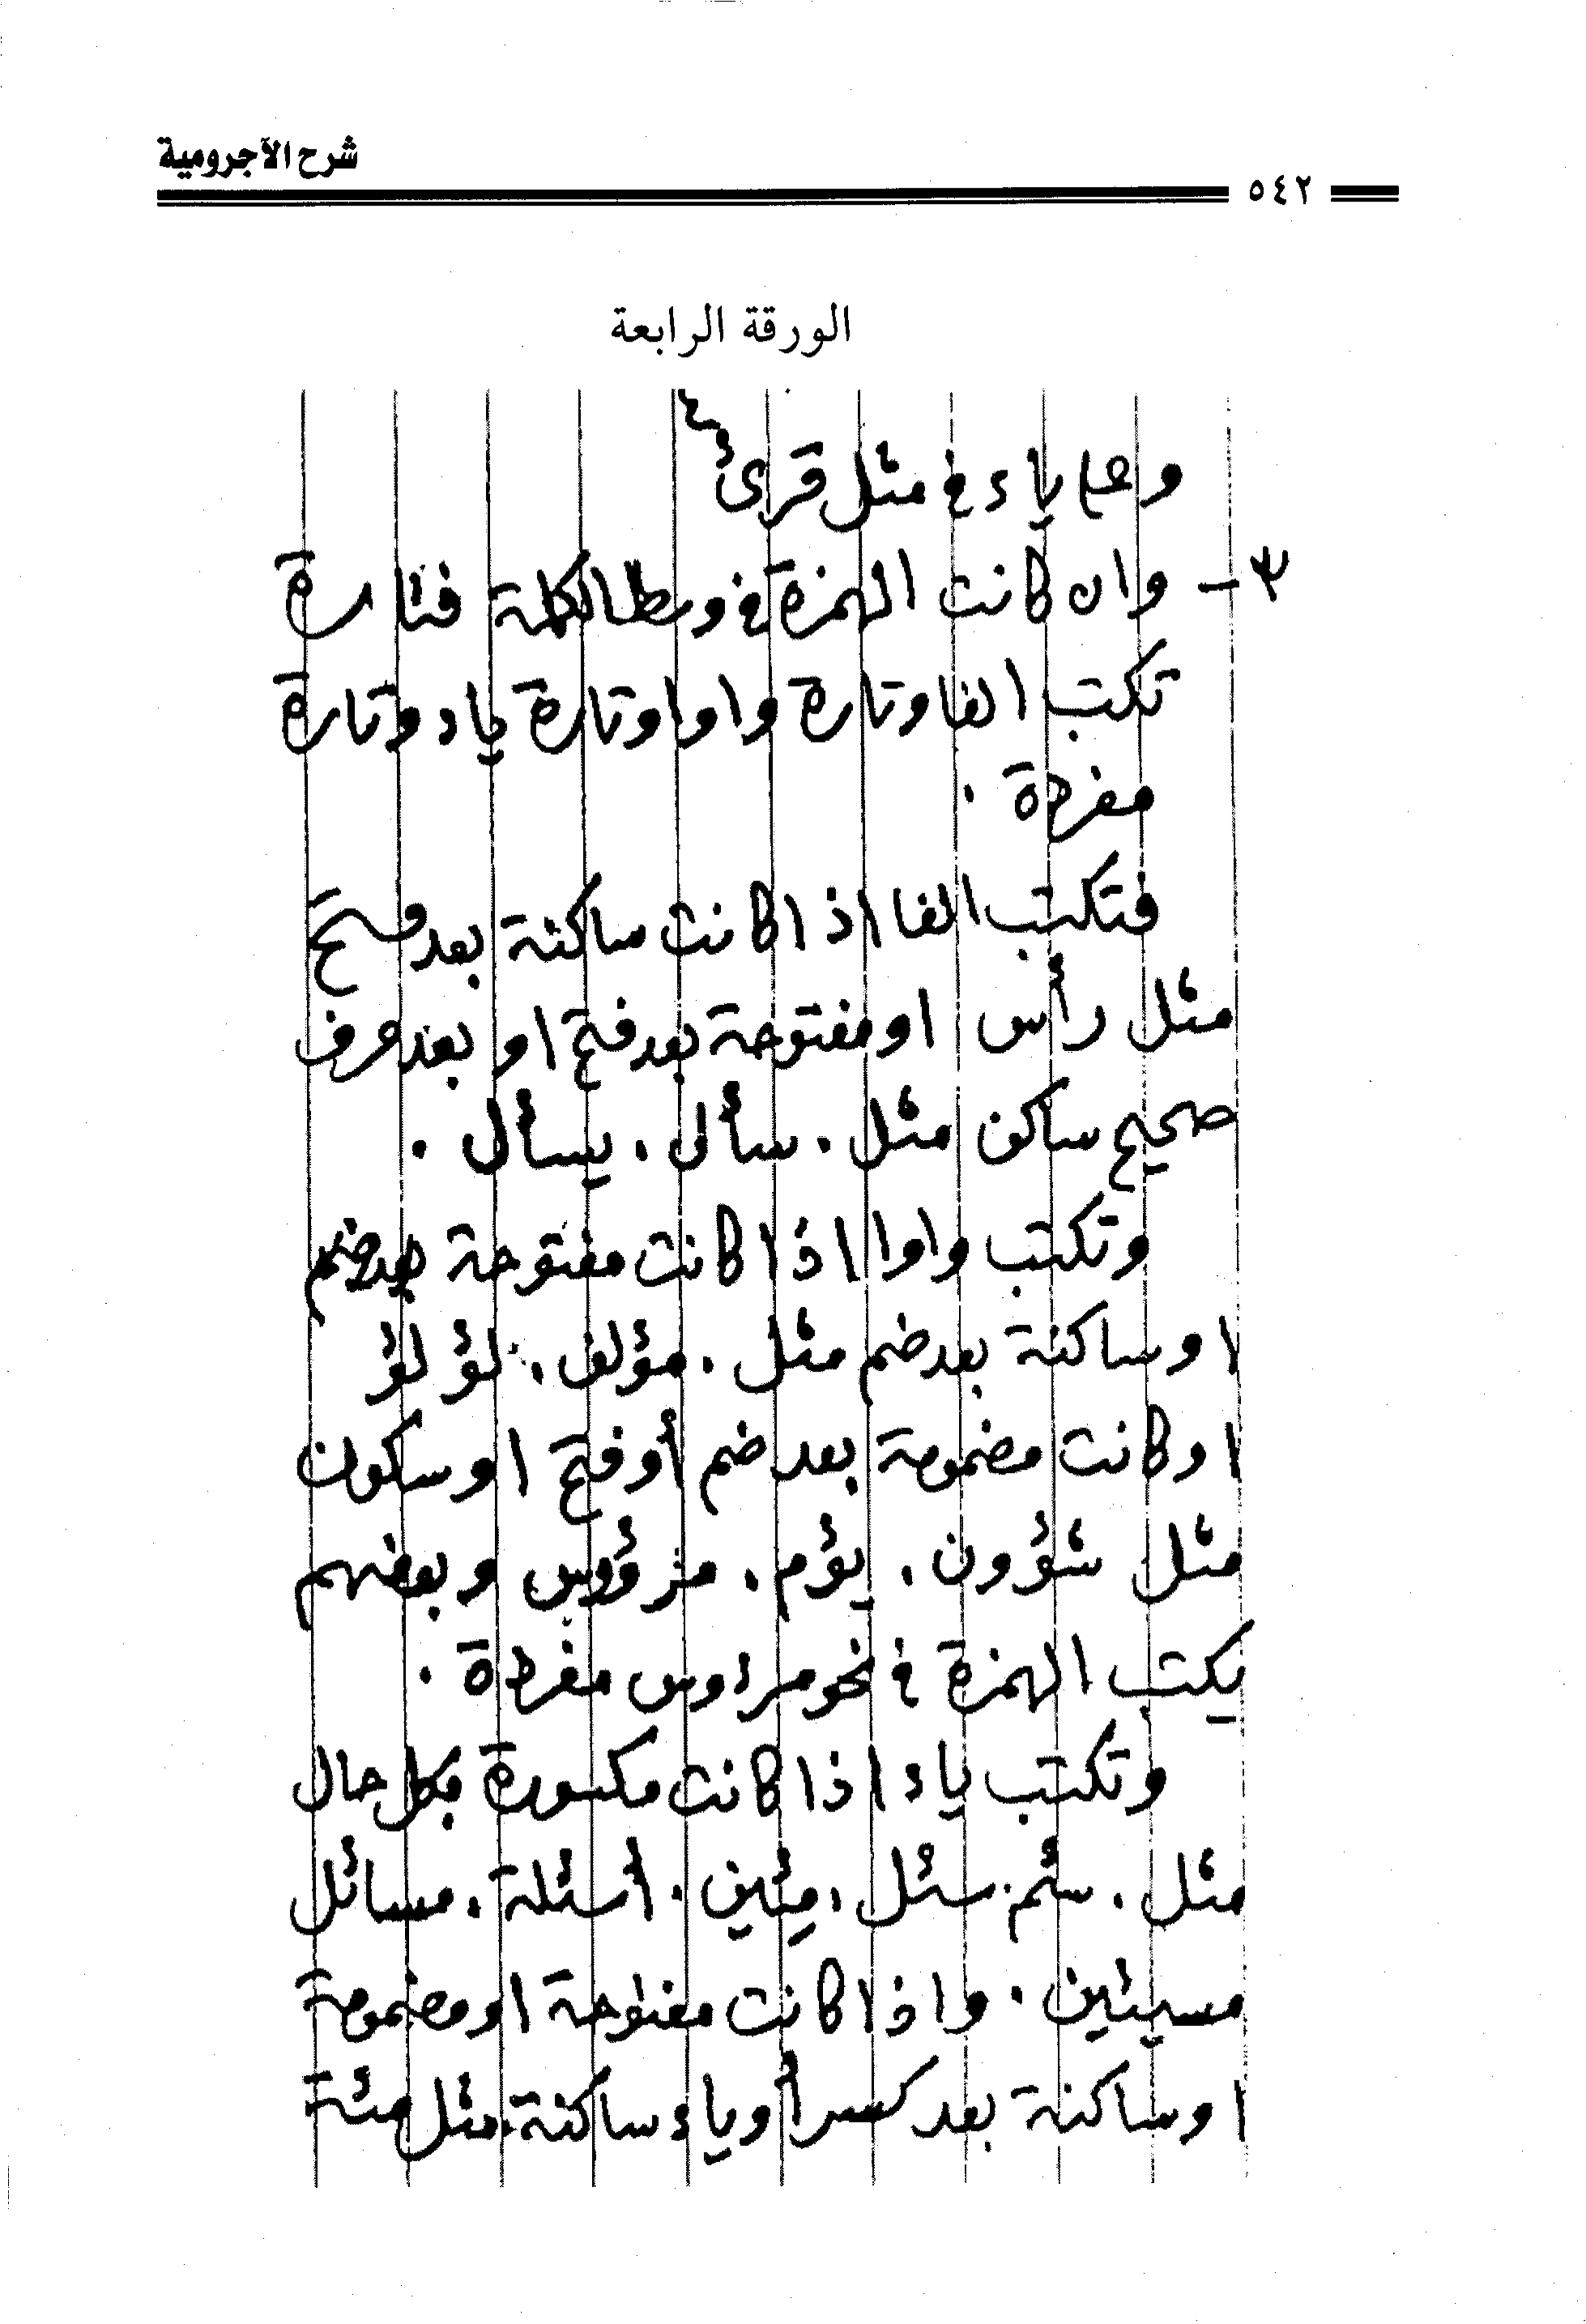 شرح الآجرومية
٥٤٢
الورقة الرابعة
٤
وعلى ياء في مثل قرئ
٣- وان كانت الهمزة في وسط الكلمة فتارة
تكتب الفا وتارة واوا وتارة ياء وتارة
مفردة .
فتكتب الفا اذا كانت ساكنة بعد فتح
مثل رأس او مفتوحة بعد فتح او بعد حرف
صحيح ساكن مثل . سأل ، يسأل .
وتكتب واوا اذا كانت مفتوحة بعد ضم
او ساكنة بعد ضم مثل . مؤلف ، لؤلؤ
او كانت مضمومة بعد ضم أو فتح او سكون
مثل شؤون ، يؤم ، مرؤوس وبعضهم
يكتب الهمزة في نحو مرءوس مفردة .
وتكتب ياء اذا كانت مكسورة بكل حال
مثل . سئم . سئل ، مئين . أسئلة . مسائل
مسيئين . واذا كانت مفتوحة او مضمومة
او ساكنة بعد كسر أو ياء ساكنة مثل مئة